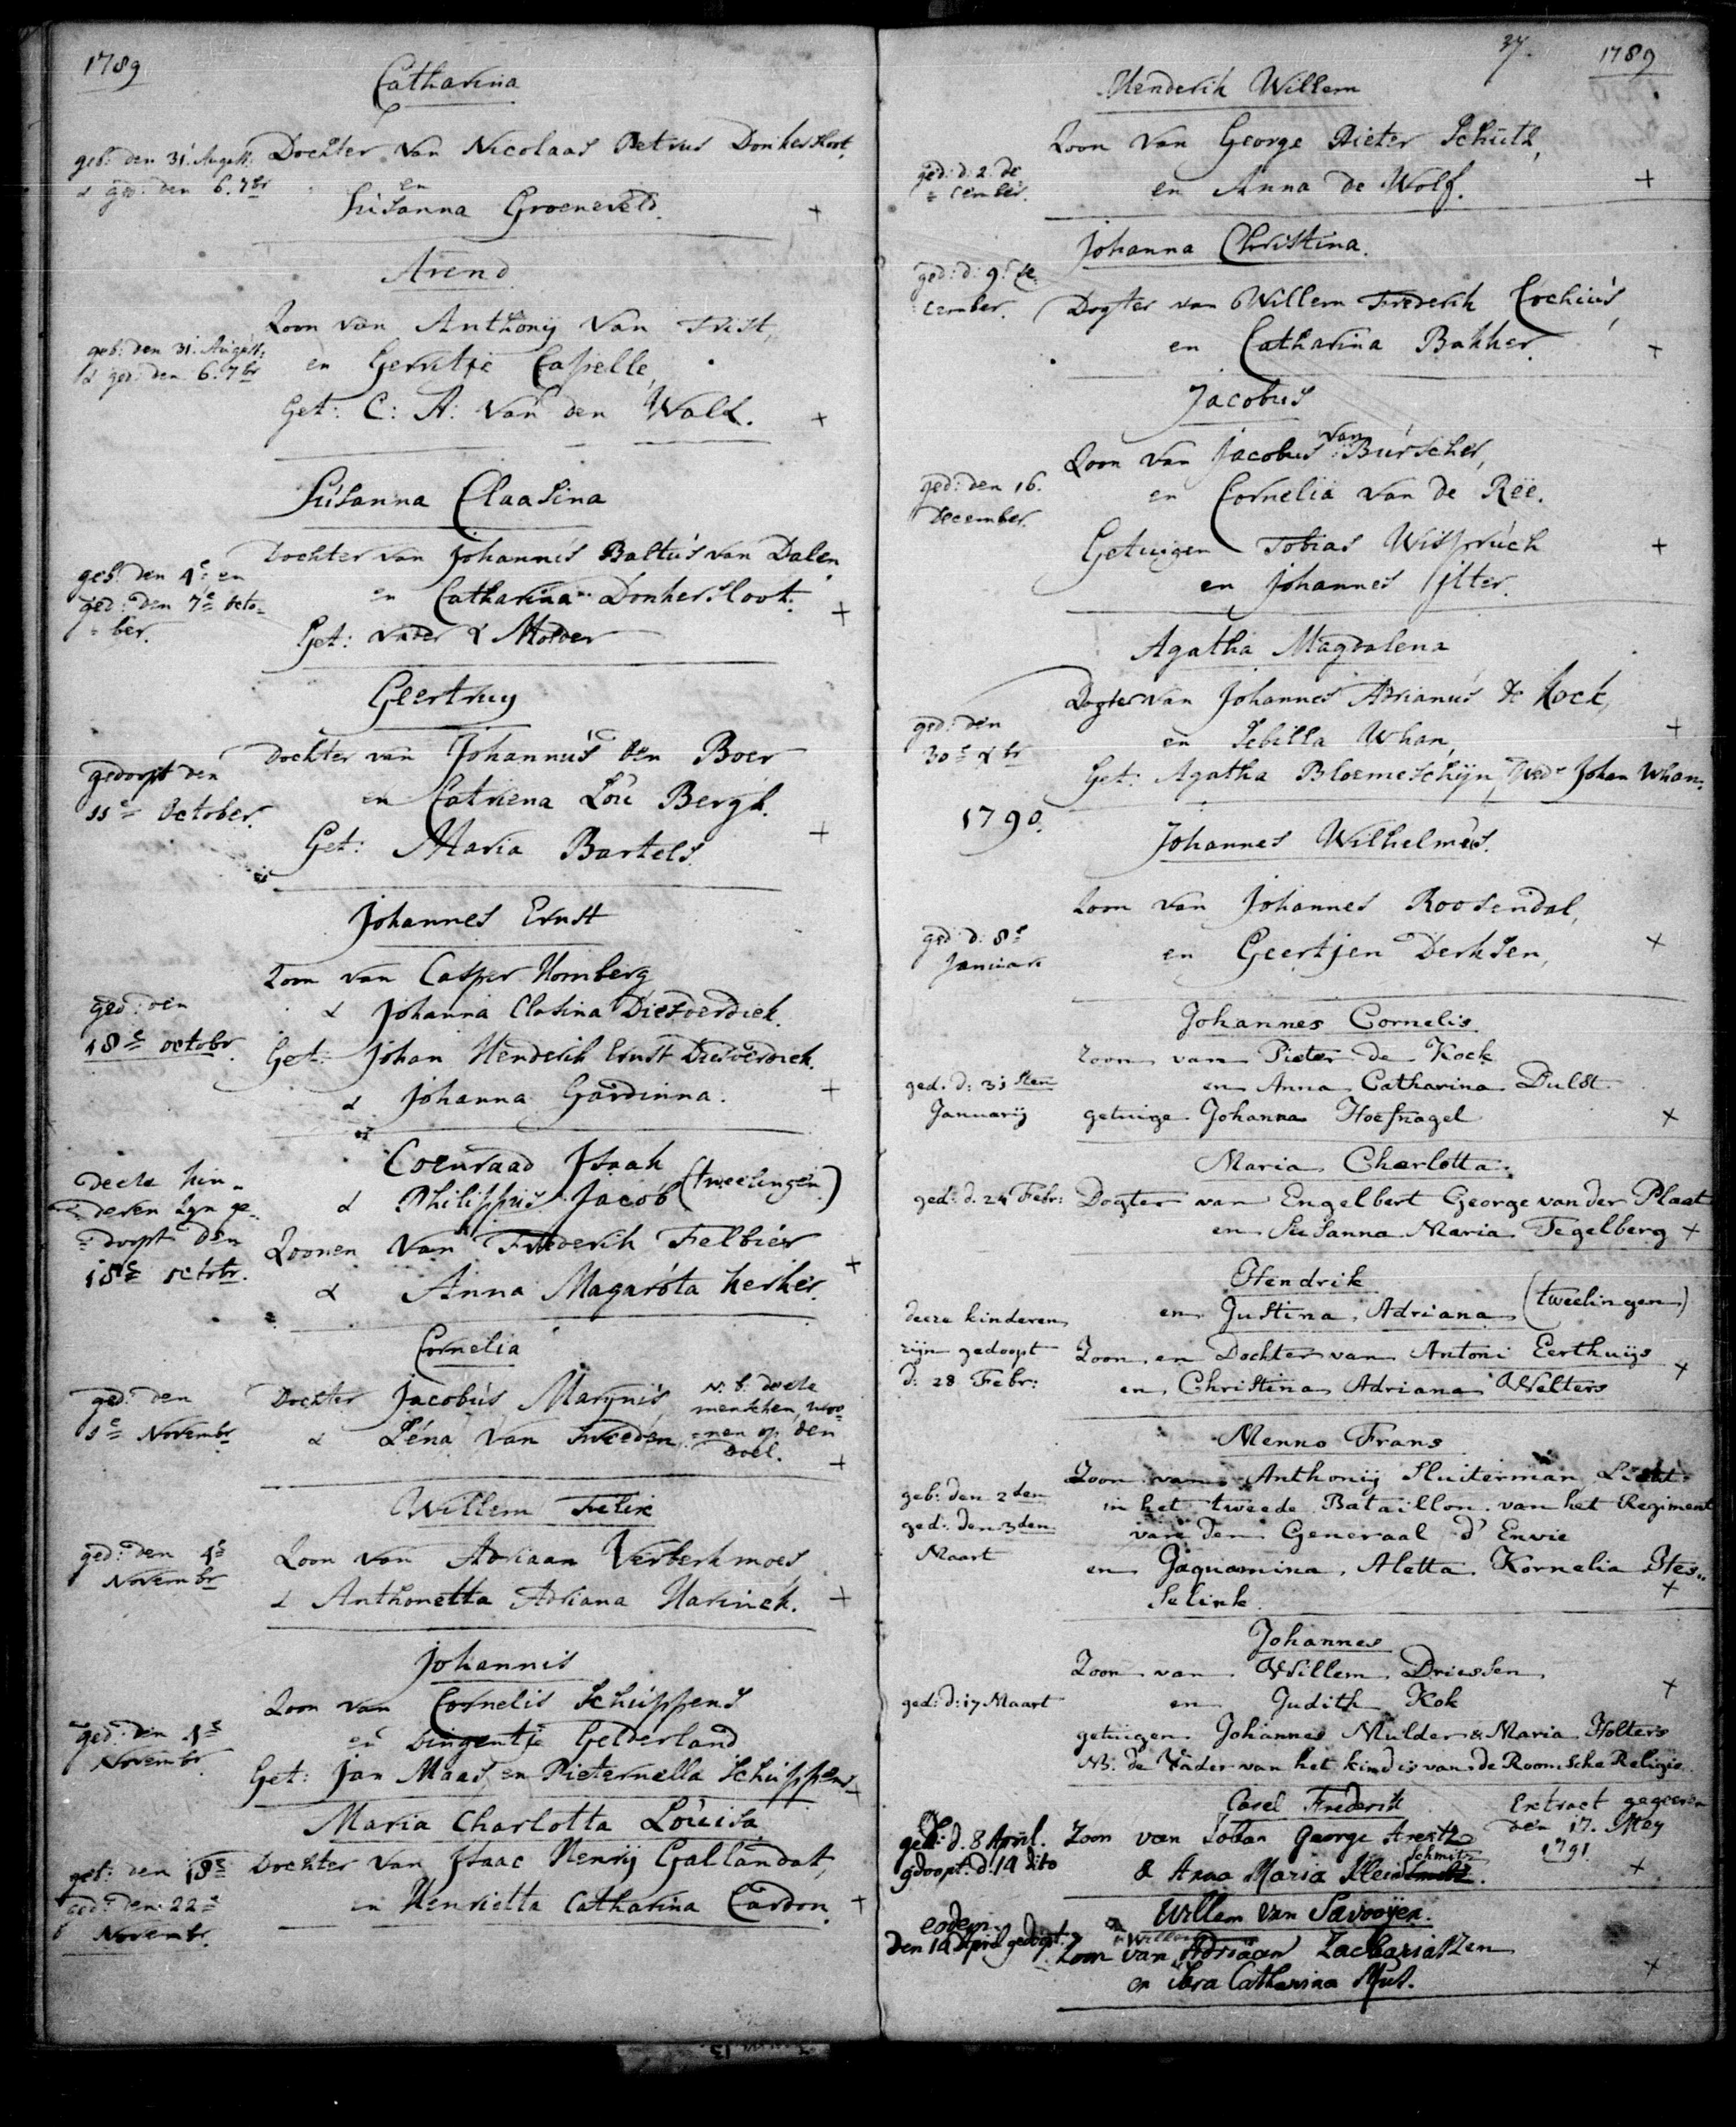 1789
Catharina
geb: den 31: August: Dochter van Nicolaas Petrus Donkersloot,
& ged: den 6. 7br en
Susanna Groeneveld. +
Arend
Zoon van Anthonij van Trist,
geb: den 31: August: en Gerritje Capelle,
& ged: den 6. 7br
Get: C: A: van den Wall. +
Susanna Claasina
Dochter van Johannis Baltus van Dalen
geb: den 4e en
en Catharina Donkersloot. +
ged: den 7e Octo-
=ber.
Get: vader & Moeder
Geertruy
Dochter van Johannus den Boer
gedoopt den
en Catriena Lou Bergh.
11e October.
Get: Maria Bartels. +
Johannes Ernst
Zoon van Casper Homberg
ged: den
& Johanna Clasina Diesverdiek.
18e octobr.
Get: Johan Henderik Ernst Diesverdiek.
& Johanna Gardinna. +
Coenraad Isaak
& Philippus Jacob (tweelingen)
deese kin-
deren zyn ge-
=doopt den
18e octobr.
Zoonen van Frederik Felbier +
& Anna Magarota Kerker.
Cornelia
ged: den
1e Novembr
Dochter Jacobus Marynis,
& Lena van Sweeden,
N: b: deese
menschen, woo-
=nen op den
Doel. +
Willem Felix
ged: den 4e
Novembr
Zoon van Adriaan Verberkmoes,
& Anthonetta Adriana Harinck. +
Johannis
Zoon van Cornelis Schuppens
ged: den 4e
Novembr.
en Dingentje Gelderland
Get: Jan Maas, en Pieternella Schuppens +
Maria Charlotta Louisa
geb: den 18e Dochter van Isaac Henrij Gallandat,
ged: den 22e
Novembr.
en Henrietta Catharina Cardon. +
37 1789
Henderik Willem
Zoon van George Pieter Schutz,
ged: d: 2. de
=cember.
en Anna de Wolf. +
Johanna Christina.
ged: d: 9e de
cember. Dogter van Willem Frederik Cochius,
en Catharina Bakker. +
Jacobus
Zoon van Jacobus van Burscher,
ged: den 16.
December.
en Cornelia van de Rëe.
Getuigen Tobias Wispruch +
en Johannes Ilter.
Agatha Magdalena
Dogter van Johannes Adrianus de Kock,
ged: den
30e Xbr
en Sebilla Whan, +
Get: Agatha Bloemeschijn, Wed: Johan Whan.
1790.
Johannes Wilhelmus.
Zoon van Johannes Roosendal,
ged: d: 8e
Januari
en Geertjen Derksen, +
Johannes Cornelis
zoon van Pieter de Kock
ged. d: 31 sten
Januarij
en Anna Catharina Dulst
getuige Johanna Hoefnagel +
Maria Charlotta.
ged: d. 24 Febr: Dogter van Engelbert George van der Plaat
en Susanna Maria Tegelberg +
Hendrik
en Justina Adriana (tweelingen)
deeze kinderen
zijn gedoopt
d: 28 Febr:
Zoon en Dochter van Antoni Eerthuijs +
en Christina Adriana Welters
Menno Frans
geb: den 2den
ged: den 3den
Maart
Zoon van Anthonij Sluiterman Licht:
in het tweede Bataillon van het Regiment
van den Generaal d'Envie
en Jaquamina Aletta Kornelia Hes..
selink. +
Johannes
Zoon van Willem Driessen +
ged: d: 17 Maart
en Judith Kok
getuigen Johannes Mulder & Maria Holters
NB. de Vader van het kind is van de Roomsche Religie.
Carel Frederik
Extract gegeeven
den 17. May
1791.
geb: d. 8 April.
gedoopt: d: 14 dito
Zoon van Johan George Arentz
& Anna Maria Schmitz. +
Willem van Savooijen.
eodem
den 14 April gedoopt.
Zoon van Adriaan Zachariassen
en Sara Catharina Mus. +